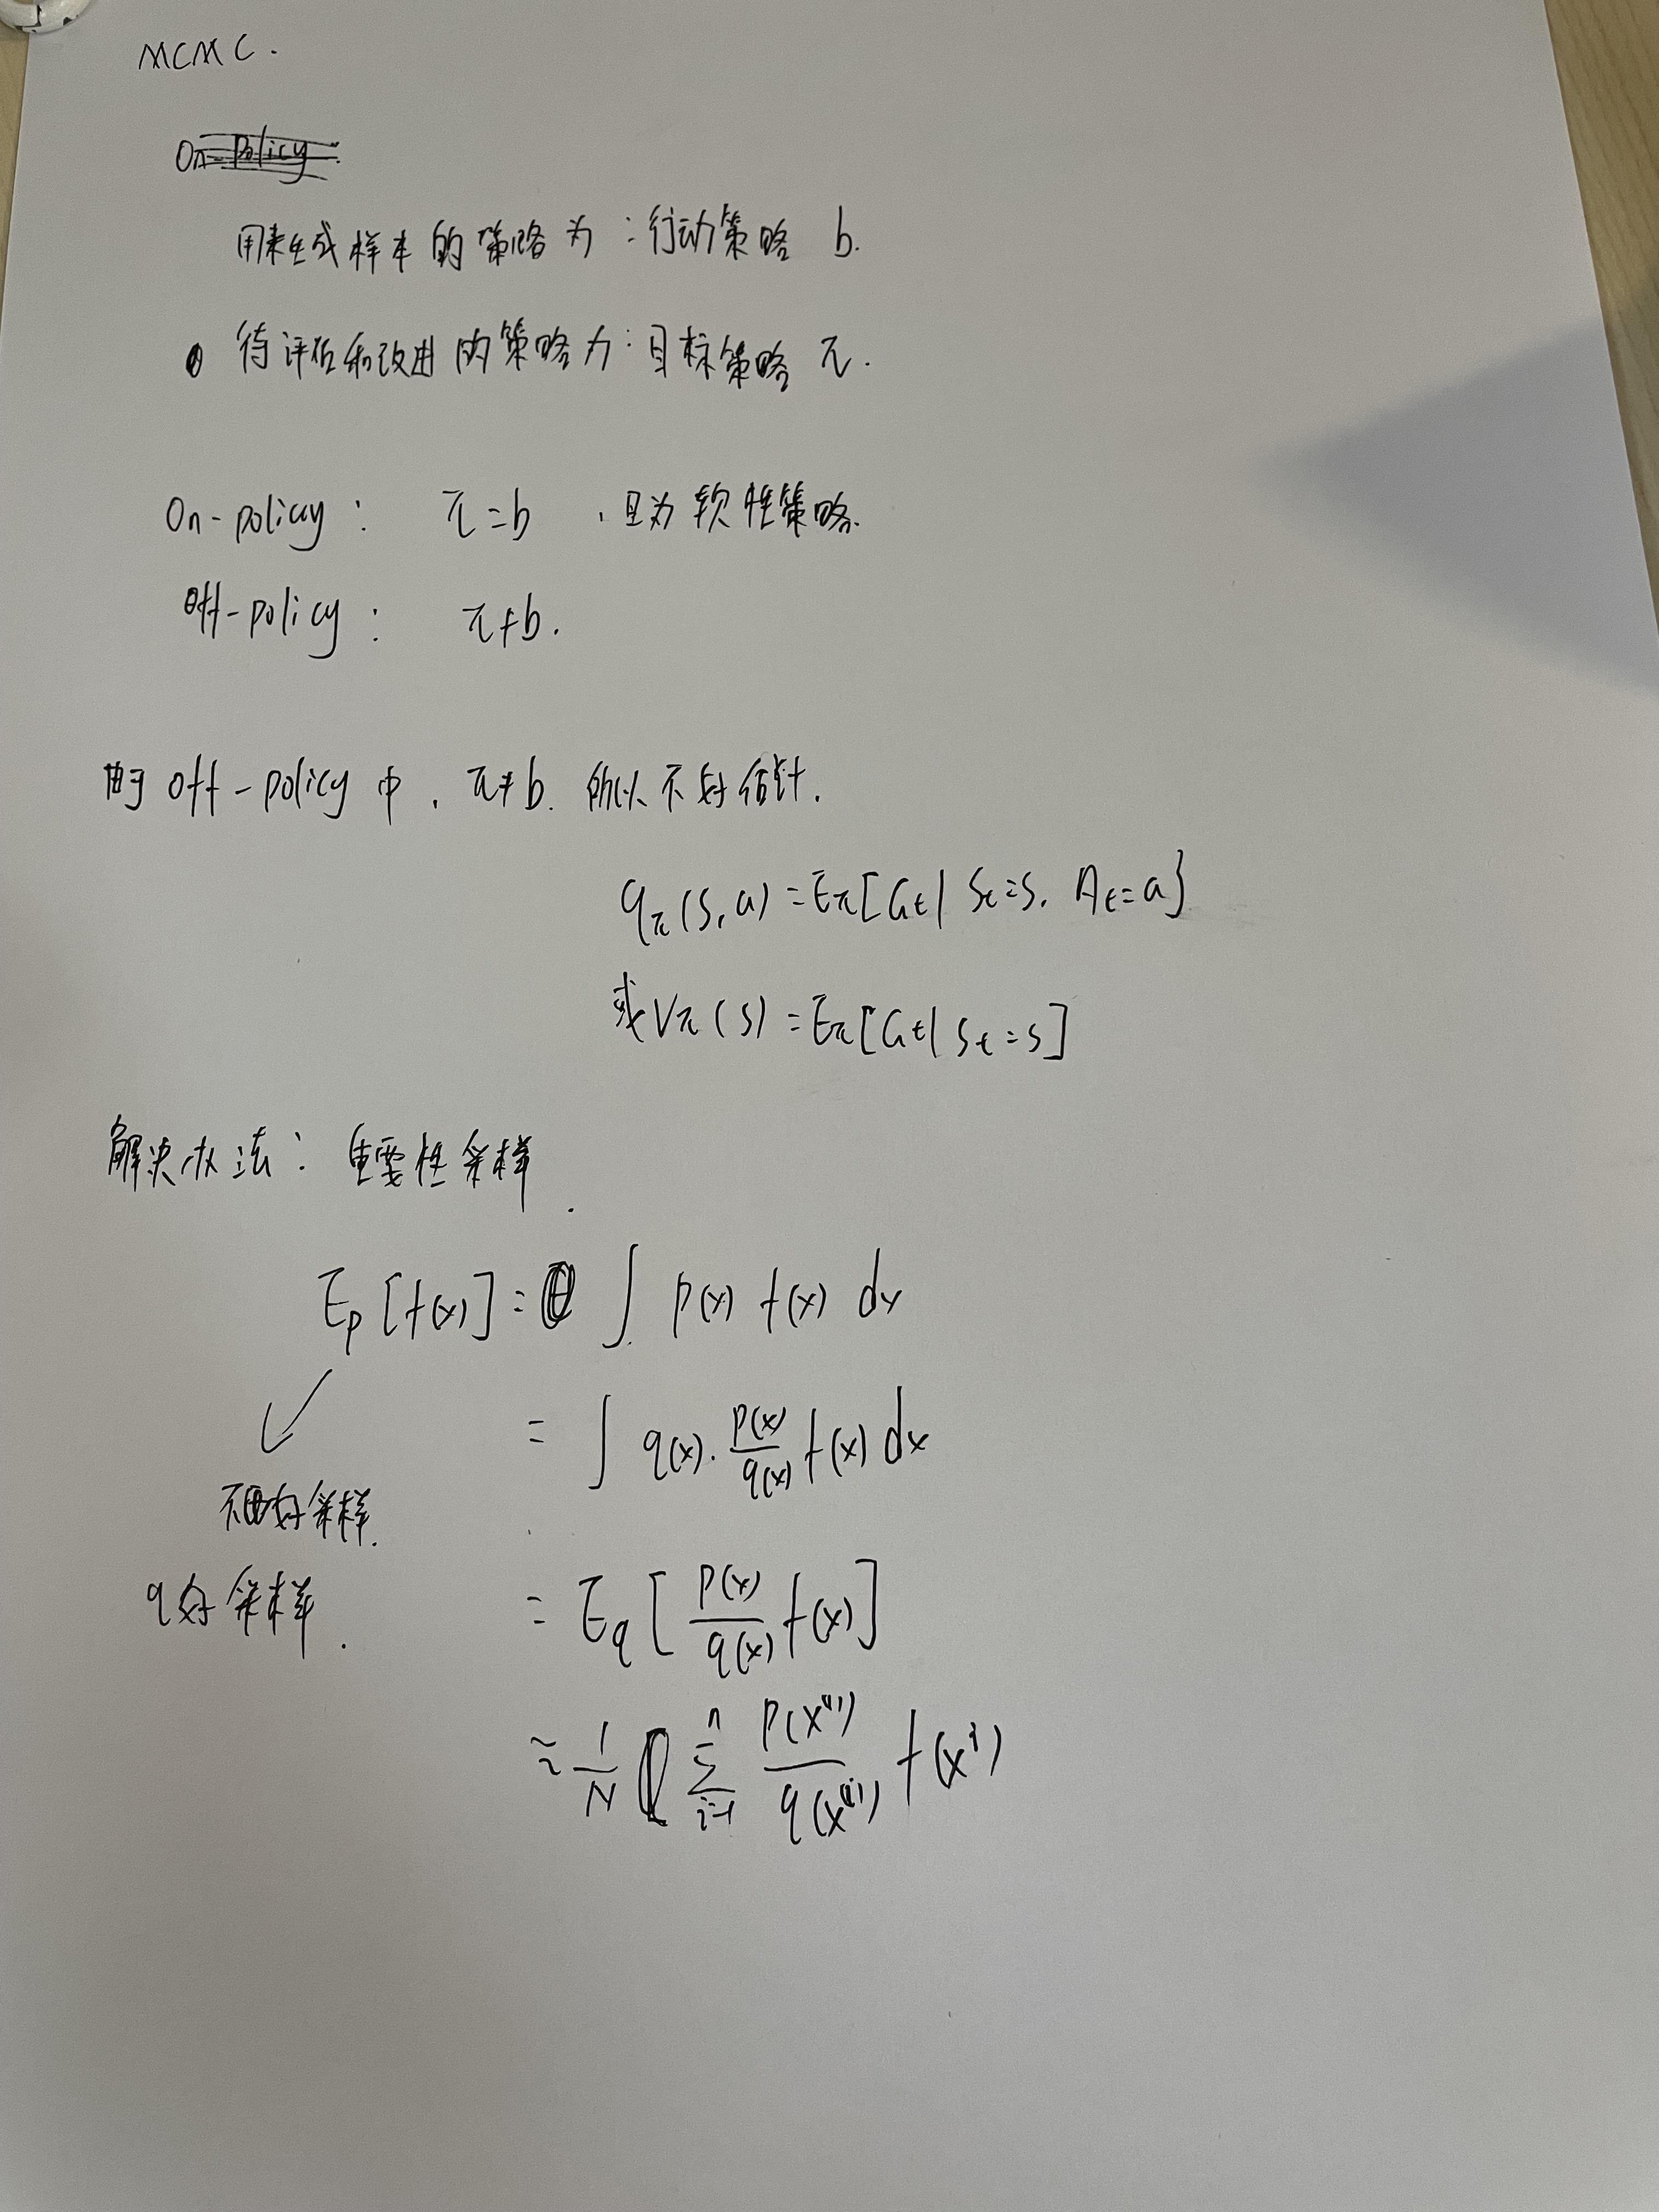 MCMC.
On-Policy
用来生成样本的策略为：行动策略 b.
待评估和改进的策略为：目标策略 π.
On-policy: π=b ，且为软性策略.
Off-policy: π≠b.
由于 off-policy 中，π≠b. 所以不好估计.
q_π(s,a)=E_π[G_t| S_t=s, A_t=a}
或 V_π(s)=E_π[G_t| S_t=s]
解决办法：重要性采样.
E_p[f(x)]= ∫ p(x) f(x) dx
= ∫ q(x)·p(x)/q(x) f(x) dx
不好采样.
q好采样.
= E_q[p(x)/q(x) f(x)]
≈ 1/N Σ_{i=1}^{n} p(x^{(i)})/q(x^{(i)}) f(x^i)